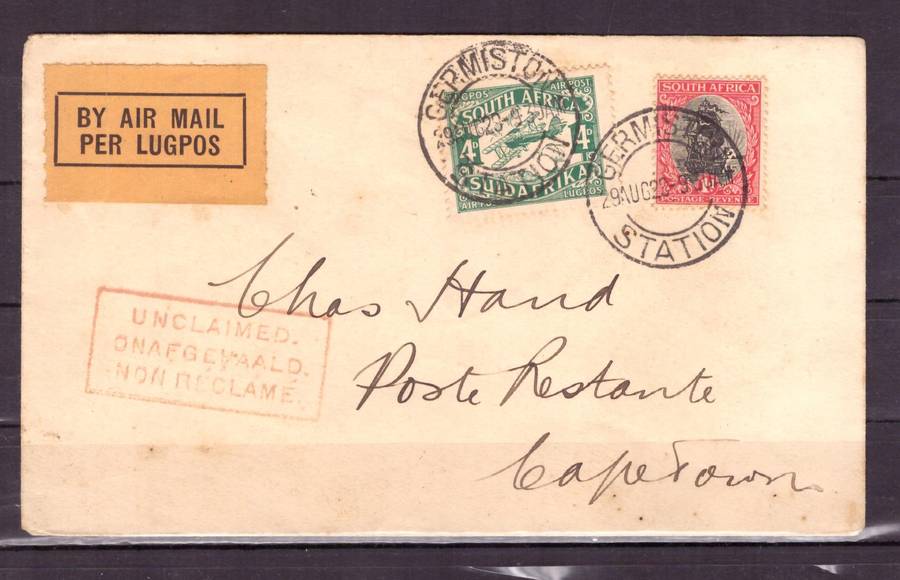 BY AIR MAIL
PER LUGPOS
GERMISTON
STATION
LUGPOS AIR POST
SOUTH AFRICA
4D 4D
SUIDAFRIKA
LUGPOS
GERMISTON
29AUG29
STATION
SOUTH AFRICA
POSTAGE-REVENUE
Chas Hand
Poste Restante
Cape Town
UNCLAIMED.
ONAFGEHAALD.
NON RÉCLAMÉ.